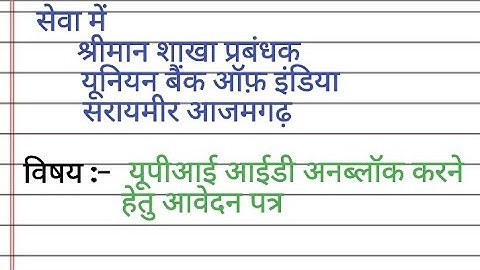 सेवा में
श्रीमान शाखा प्रबंधक
यूनियन बैंक ऑफ़ इंडिया
सरायमीर आजमगढ़
विषय :- यूपीआई आईडी अनब्लॉक करने
हेतु आवेदन पत्र